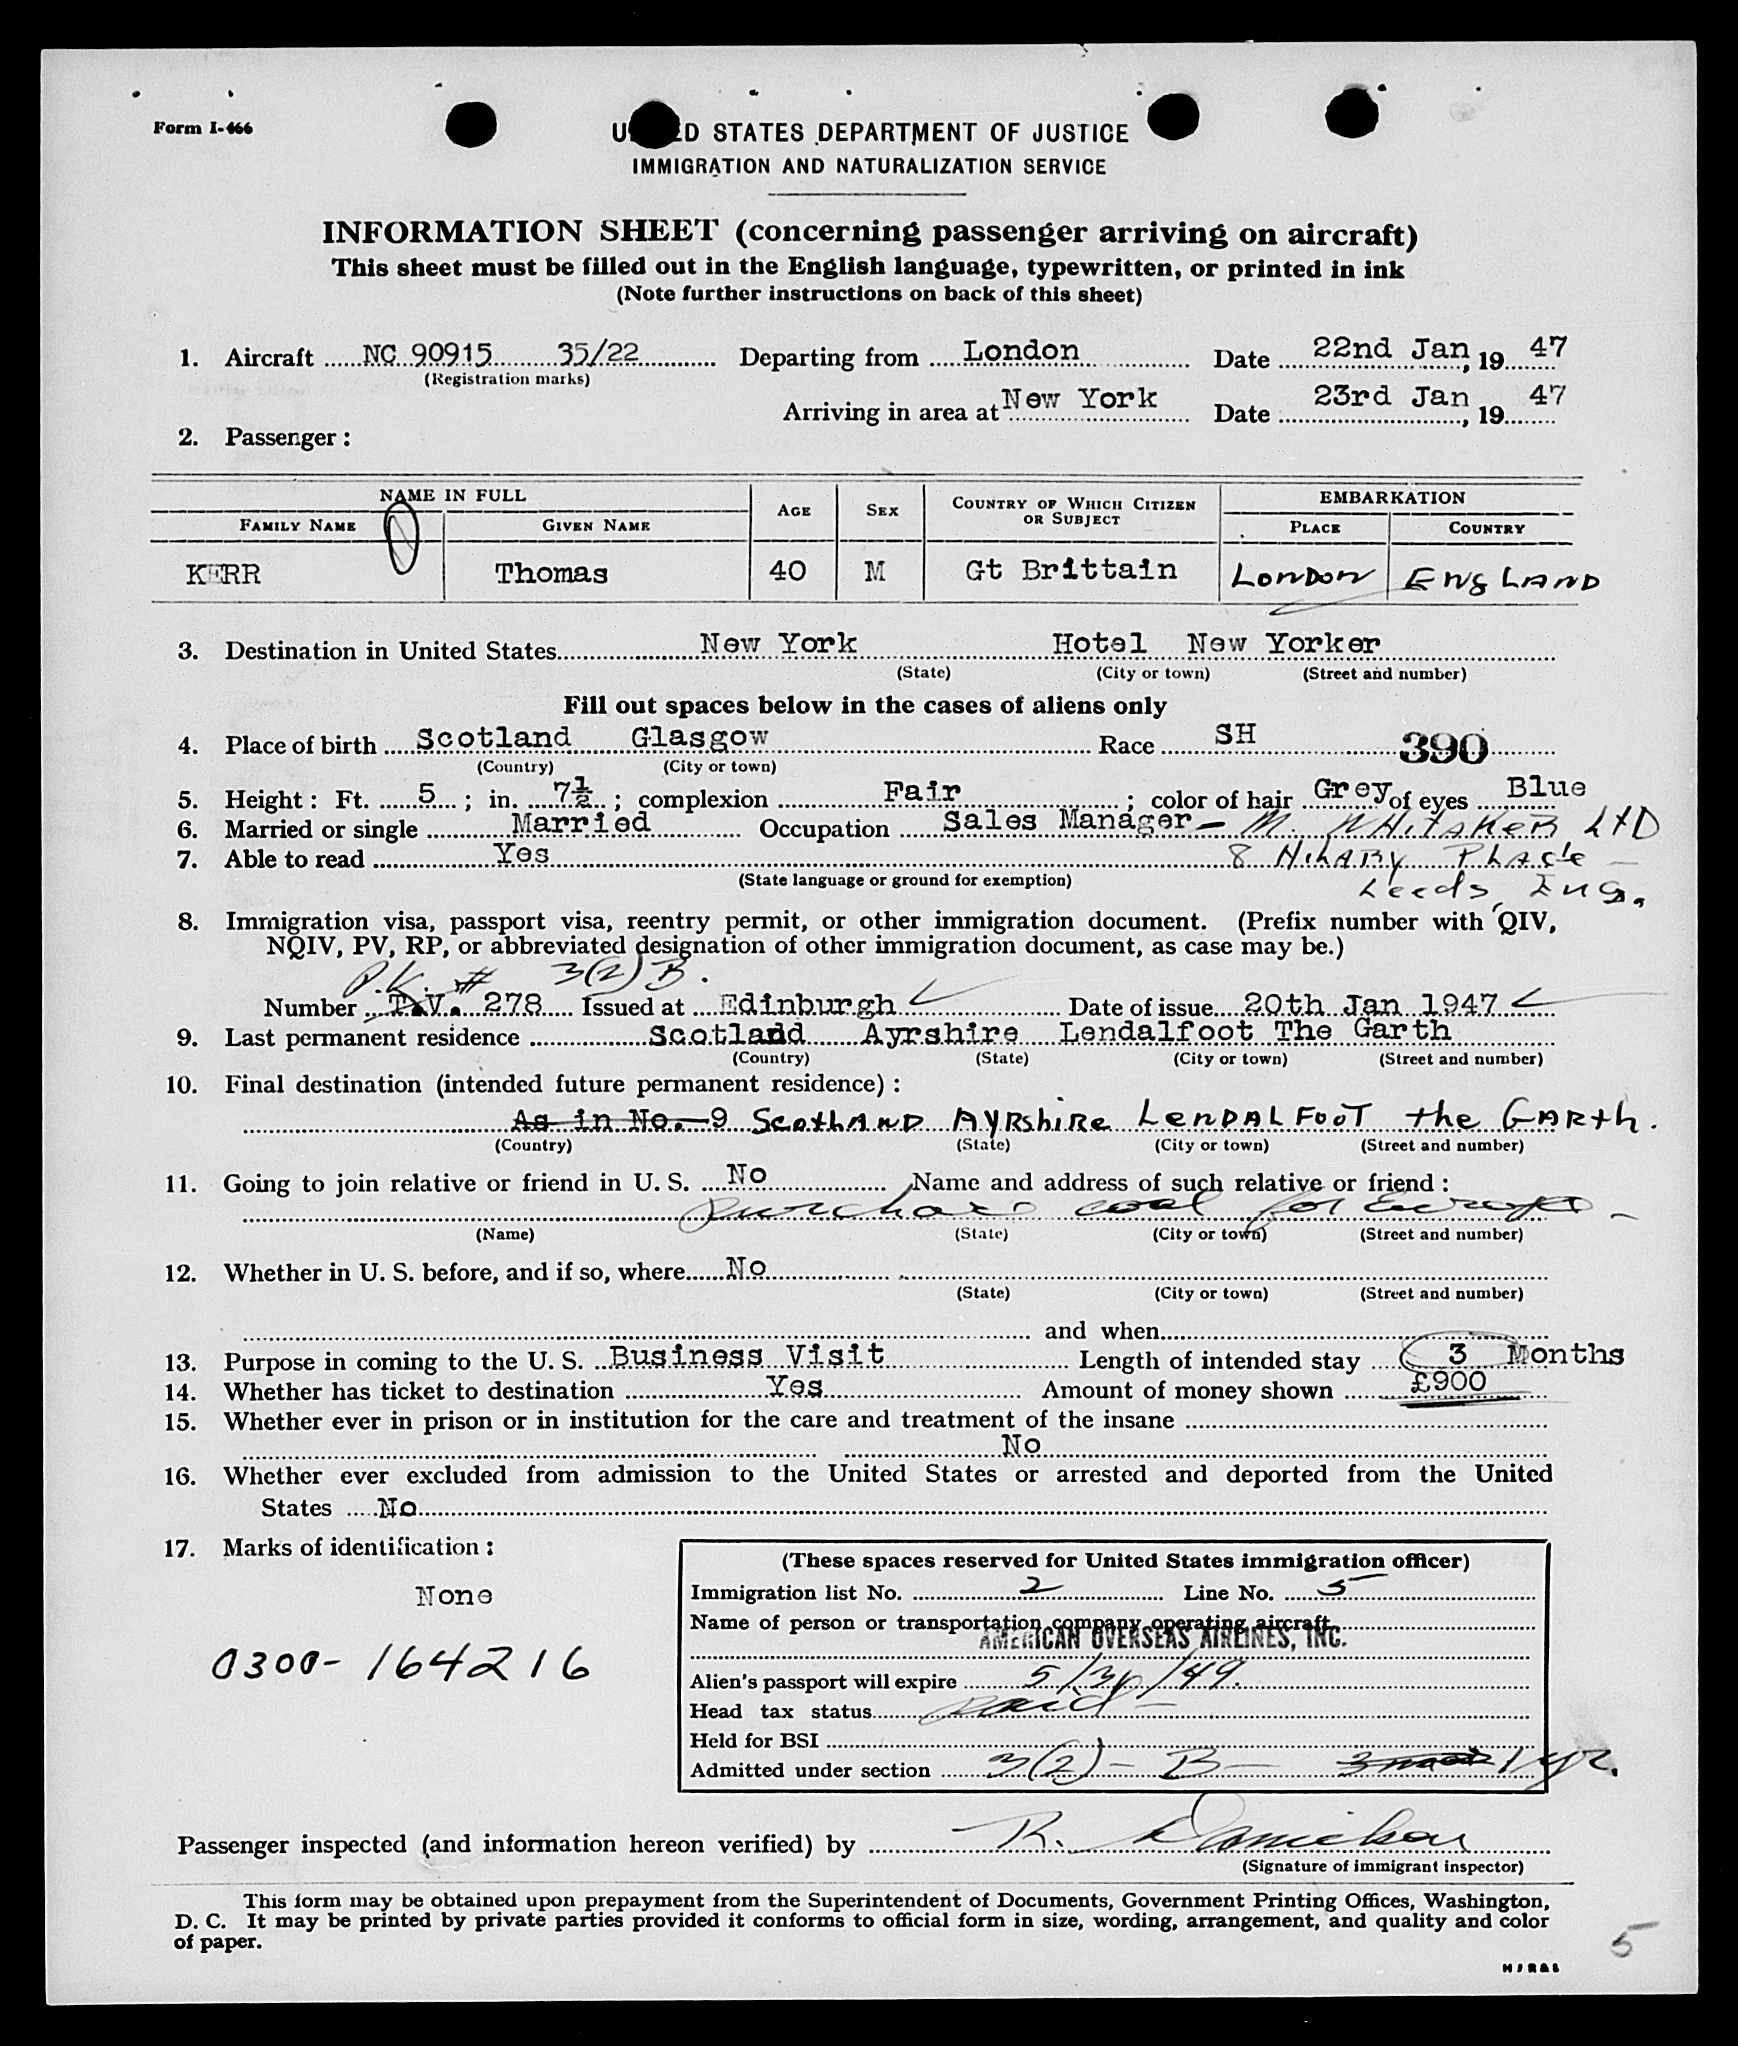 Form I-466
U D STATES DEPARTMENT OF JUSTICE
IMMIGRATION AND NATURALIZATION SERVICE
INFORMATION SHEET (concerning passenger arriving on aircraft)
This sheet must be filled out in the English language, typewritten, or printed in ink
(Note further instructions on back of this sheet)
1. Aircraft NC 90915 35/22 Departing from London Date 22nd Jan, 19 47
(Registration marks)
Arriving in area at New York Date 23rd Jan, 19 47
2. Passenger:
NAME IN FULL AGE SEX COUNTRY OF WHICH CITIZEN OR SUBJECT EMBARKATION
FAMILY NAME GIVEN NAME PLACE COUNTRY
KERR Thomas 40 M Gt Brittain LONDON ENGLAND
3. Destination in United States New York Hotel New Yorker
(State) (City or town) (Street and number)
Fill out spaces below in the cases of aliens only
4. Place of birth Scotland Glasgow Race SH 390
(Country) (City or town)
5. Height: Ft. 5; in. 7½; complexion Fair; color of hair Grey of eyes Blue
6. Married or single Married Occupation Sales Manager - M. WHITAKER LTD
7. Able to read Yes 8 HILARY PLACE -
(State language or ground for exemption) Leeds, Eng.
8. Immigration visa, passport visa, reentry permit, or other immigration document. (Prefix number with QIV,
NQIV, PV, RP, or abbreviated designation of other immigration document, as case may be.)
P.V. # 3(2) B.
Number T.V. 278 Issued at Edinburgh Date of issue 20th Jan 1947
9. Last permanent residence Scotland Ayrshire Lendalfoot The Garth
(Country) (State) (City or town) (Street and number)
10. Final destination (intended future permanent residence):
As in No. 9 SCOTLAND AYRShiRe LENDALFOOT the GARth.
(Country) (State) (City or town) (Street and number)
11. Going to join relative or friend in U. S. No Name and address of such relative or friend:
purchase coal for
(Name) (State) (City or town) (Street and number)
12. Whether in U. S. before, and if so, where No
(State) (City or town) (Street and number)
and when
13. Purpose in coming to the U. S. Business Visit Length of intended stay 3 Months
14. Whether has ticket to destination Yes Amount of money shown £900
15. Whether ever in prison or in institution for the care and treatment of the insane
No
16. Whether ever excluded from admission to the United States or arrested and deported from the United
States No
17. Marks of identification:
None
0300-164216
(These spaces reserved for United States immigration officer)
Immigration list No. 2 Line No. 5
Name of person or transportation company operating aircraft
AMERICAN OVERSEAS AIRLINES, INC.
Alien's passport will expire 5/31/49.
Head tax status paid -
Held for BSI
Admitted under section 3(2) - B - 3 mos 1 yr.
Passenger inspected (and information hereon verified) by R. Danielson
(Signature of immigrant inspector)
This form may be obtained upon prepayment from the Superintendent of Documents, Government Printing Offices, Washington,
D. C. It may be printed by private parties provided it conforms to official form in size, wording, arrangement, and quality and color
of paper.
5